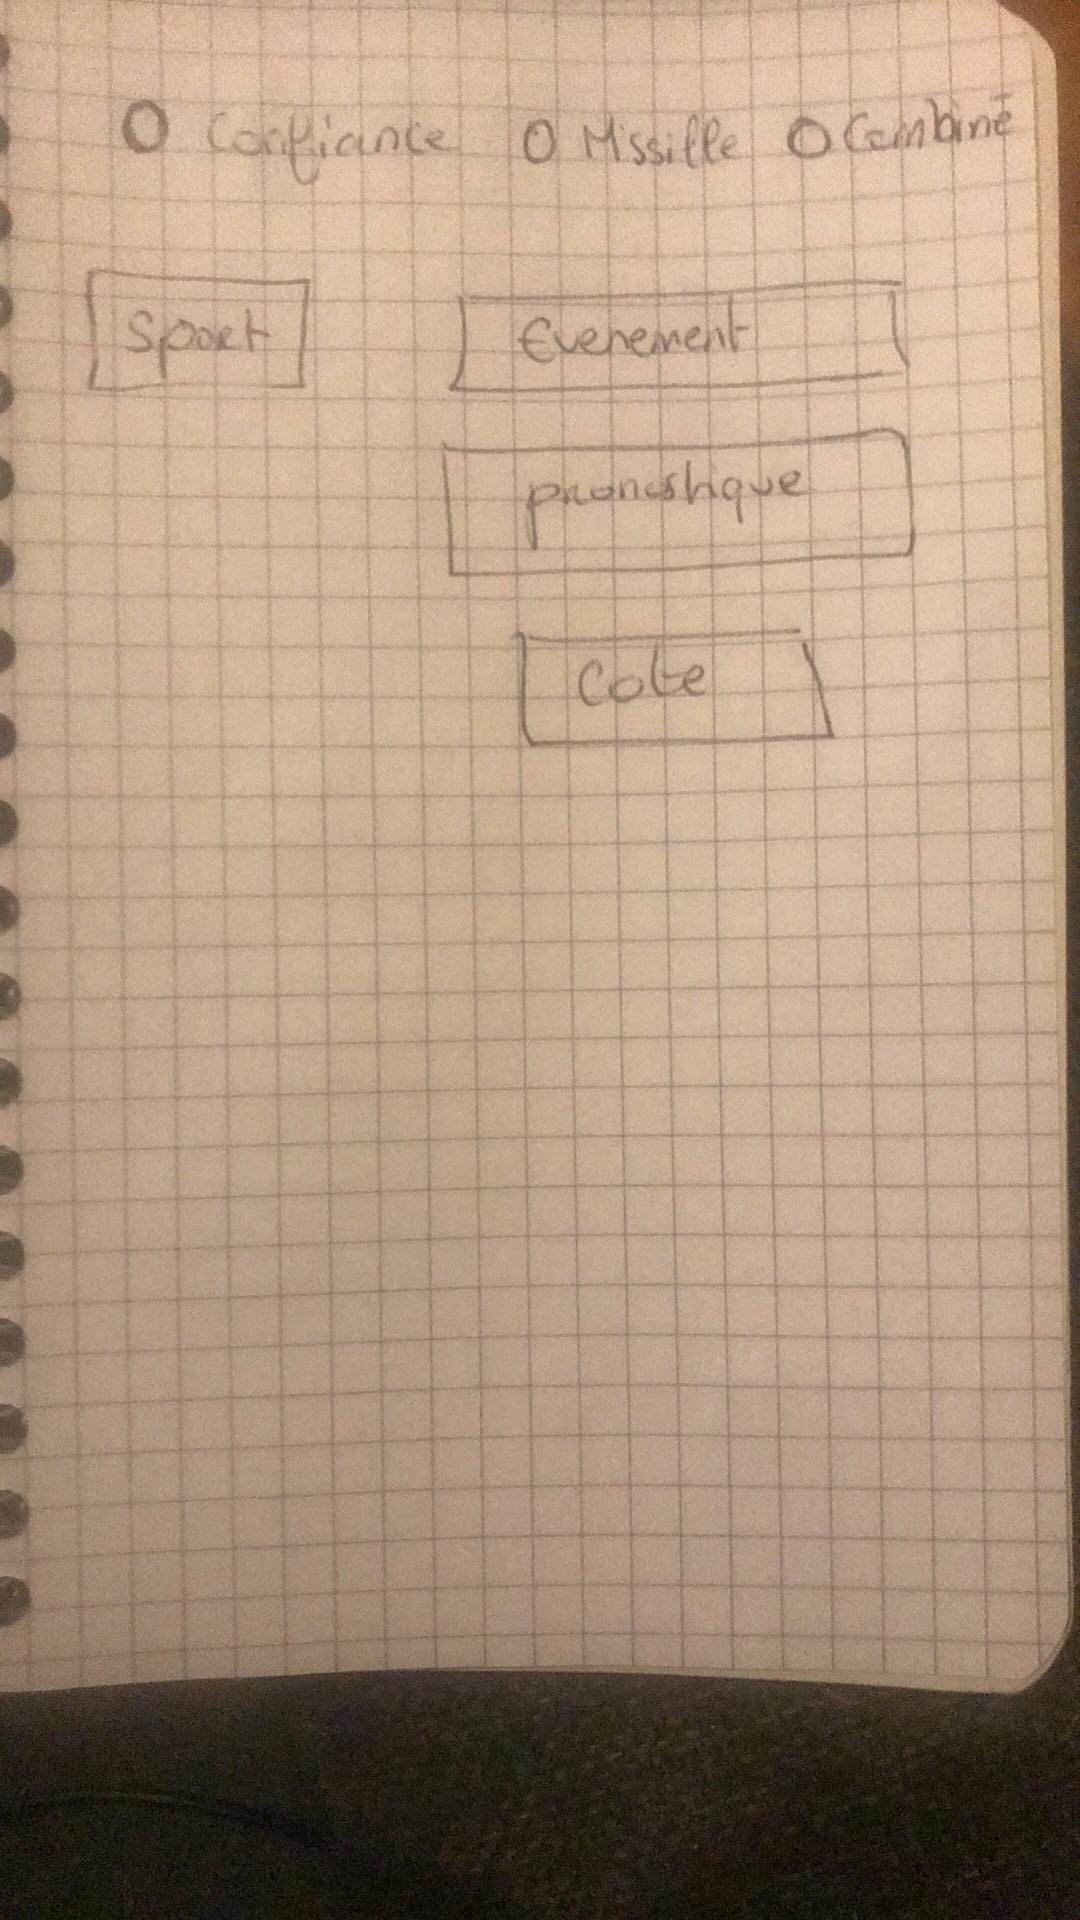 O Confiance O Missille O Combiné
Sport Evenement
pronostique
Cote